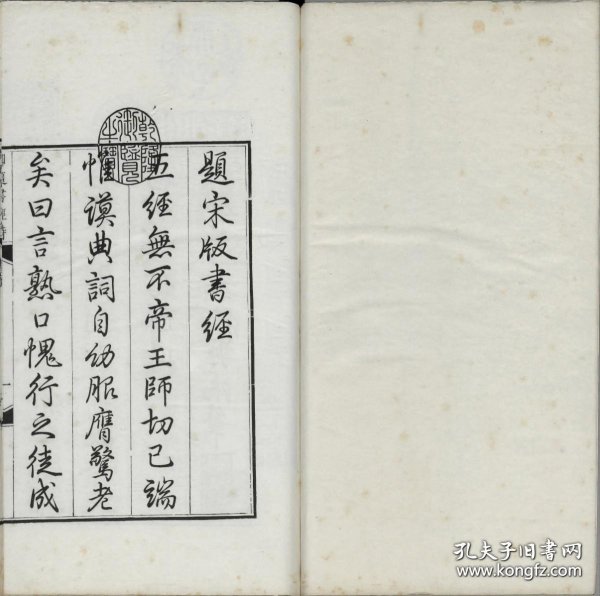 題宋版書經
五經無不帝王師切己端
惟謨典詞自幼服膺驚老
矣曰言熟口愧行之徒成
乾隆御覽之寶
孔夫子旧书网
www.kongfz.com